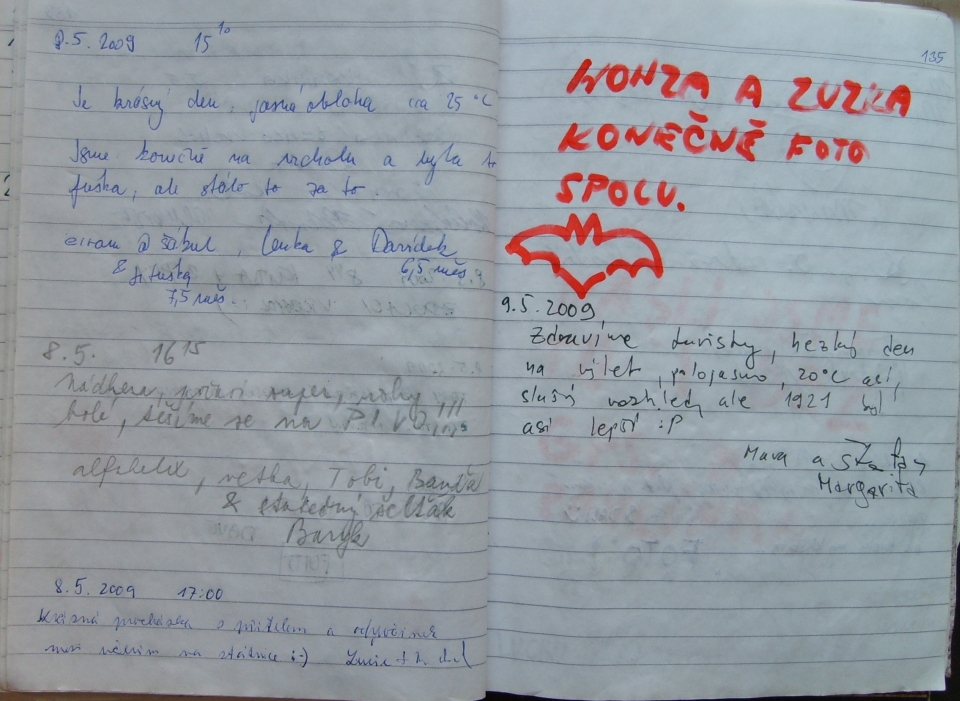 8.5.2009 15¹⁰
Je krásný den, jasná obloha cca 25 °C
Jsme konečně na vrcholu a byla to
fuška, ale stálo to za to.
@ šábul, Lenka & Davídek
6,5 měs.
&
7,5 měs.
8.5. 16¹⁵
Nádhera, nohy
bolí, těšíme se na PIVO
alfelelix, Tobi,
& selťák
Baryk
8.5.2009 17:00
Krásná procházka s přítelem a odpočinek
mezi učením na státnice :-) Lucie +
135
HONZA A ZUZKA
KONEČNĚ FOTO
SPOLU.
9.5.2009,
Zdravíme turisty, hezký den
na výlet, polojasno, 20°C asi,
slušný rozhledy ale 1921 byl
asi lepší :P
a
Margarita